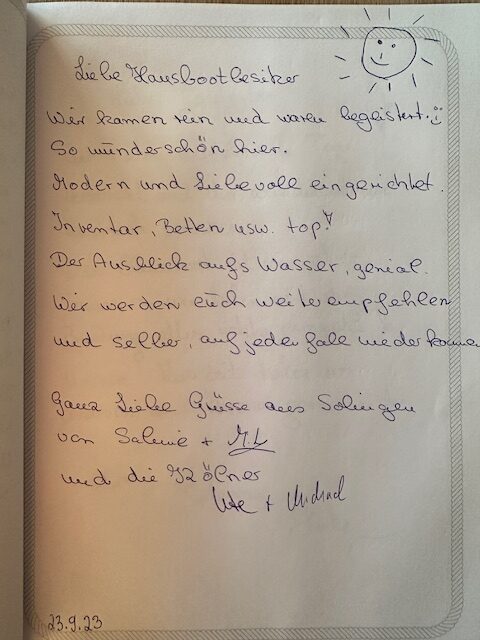 Liebe Hausbootbesitzer
Wir kamen rein und waren begeistert.
So wunderschön hier.
Modern und Liebevoll eingerichtet.
Inventar, Betten usw. top!
Der Ausblick aufs Wasser, genial.
Wir werden euch weiterempfehlen
und selber, auf jeden fall wieder kommen
Ganz Liebe Grüsse aus Solingen
von + M.L
und die Kölner
Ute + Michael
23.9.23